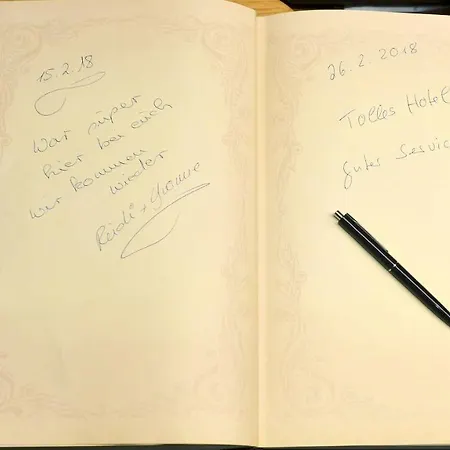 15.2.18
War super
hier bei euch
wir kommen
wieder
Rudi + Yvonne
26.2.2018
Tolles Hotel
guter Servic